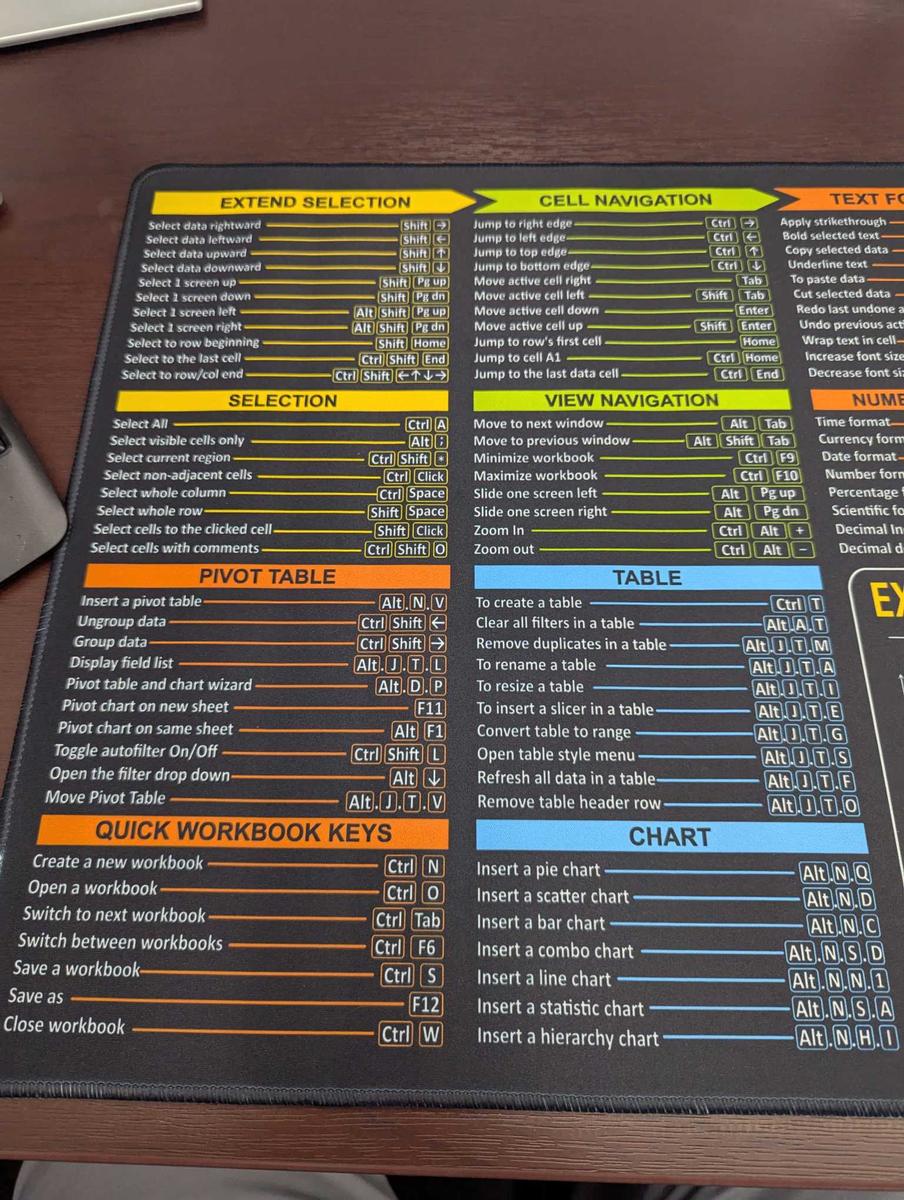 EXTEND SELECTION
Select data rightward Shift →
Select data leftward Shift ←
Select data upward Shift ↑
Select data downward Shift ↓
Select 1 screen up Shift Pg up
Select 1 screen down Shift Pg dn
Select 1 screen left Alt Shift Pg up
Select 1 screen right Alt Shift Pg dn
Select to row beginning Shift Home
Select to the last cell Ctrl Shift End
Select to row/col end Ctrl Shift ←↑↓→
SELECTION
Select All Ctrl A
Select visible cells only Alt ;
Select current region Ctrl Shift *
Select non-adjacent cells Ctrl Click
Select whole column Ctrl Space
Select whole row Shift Space
Select cells to the clicked cell Shift Click
Select cells with comments Ctrl Shift O
PIVOT TABLE
Insert a pivot table Alt.N.V
Ungroup data Ctrl Shift ←
Group data Ctrl Shift →
Display field list Alt.J.T.L
Pivot table and chart wizard Alt.D.P
Pivot chart on new sheet F11
Pivot chart on same sheet Alt F1
Toggle autofilter On/Off Ctrl Shift L
Open the filter drop down Alt ↓
Move Pivot Table Alt.J.T.V
QUICK WORKBOOK KEYS
Create a new workbook Ctrl N
Open a workbook Ctrl O
Switch to next workbook Ctrl Tab
Switch between workbooks Ctrl F6
Save a workbook Ctrl S
Save as F12
Close workbook Ctrl W
CELL NAVIGATION
Jump to right edge Ctrl →
Jump to left edge Ctrl ←
Jump to top edge Ctrl ↑
Jump to bottom edge Ctrl ↓
Move active cell right Tab
Move active cell left Shift Tab
Move active cell down Enter
Move active cell up Shift Enter
Jump to row's first cell Home
Jump to cell A1 Ctrl Home
Jump to the last data cell Ctrl End
VIEW NAVIGATION
Move to next window Alt Tab
Move to previous window Alt Shift Tab
Minimize workbook Ctrl F9
Maximize workbook Ctrl F10
Slide one screen left Alt Pg up
Slide one screen right Alt Pg dn
Zoom In Ctrl Alt +
Zoom out Ctrl Alt −
TABLE
To create a table Ctrl T
Clear all filters in a table Alt.A.T
Remove duplicates in a table Alt.J.T.M
To rename a table Alt.J.T.A
To resize a table Alt.J.T.I
To insert a slicer in a table Alt.J.T.E
Convert table to range Alt.J.T.G
Open table style menu Alt.J.T.S
Refresh all data in a table Alt.J.T.F
Remove table header row Alt.J.T.O
CHART
Insert a pie chart Alt.N.Q
Insert a scatter chart Alt.N.D
Insert a bar chart Alt.N.C
Insert a combo chart Alt.N.S.D
Insert a line chart Alt.N.N.1
Insert a statistic chart Alt.N.S.A
Insert a hierarchy chart Alt.N.H.I
TEXT FO
Apply strikethrough
Bold selected text
Copy selected data
Underline text
To paste data
Cut selected data
Redo last undone a
Undo previous acti
Wrap text in cell
Increase font size
Decrease font siz
NUMB
Time format
Currency form
Date format
Number form
Percentage f
Scientific fo
Decimal In
Decimal d
EX